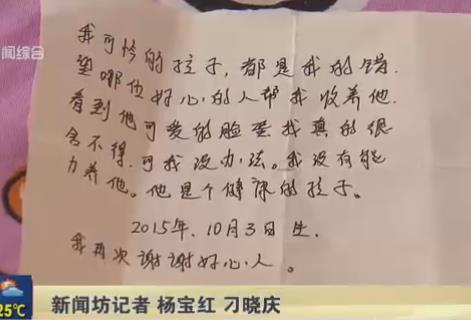 闻综合
我可怜的孩子，都是我的错.
望哪位好心的人帮我收养他.
看到他可爱的脸蛋我真的很
舍不得.可我没办法。我没有能
力养他。他是个健康的孩子。
2015年.10月3日生.
我再次谢谢好心人。
新闻坊记者 杨宝红 刁晓庆
25℃